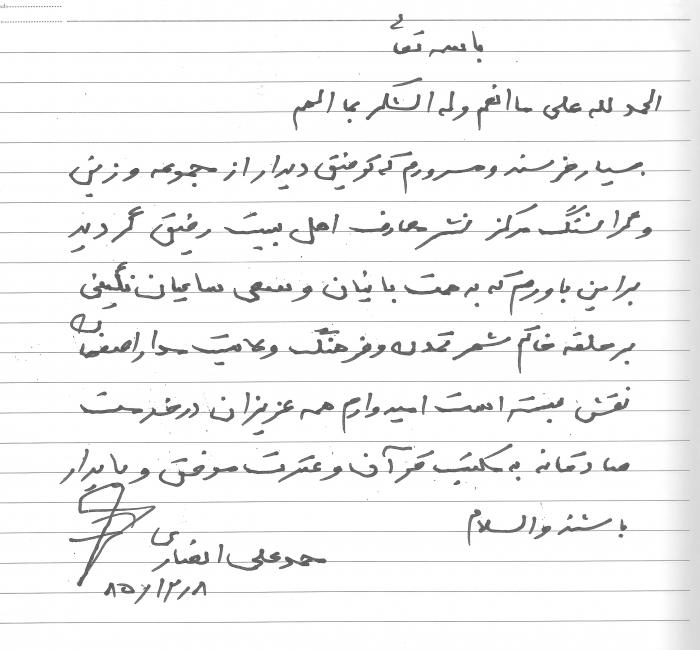 باسمه تعالی
الحمد لله علی ما انعم وله الشکر بما الهم
بسیار خرسند و مسرورم که توفیق دیدار از مجموعه وزین
و گرانسنگ مرکز نشر معارف اهل بیت رفیق گردید
بر این باورم که به همت بانیان و سعی ساعیان نگینی
بر حلقه خاتم شهر تمدن و فرهنگ و ولایت مدار اصفهان
نقش بسته است امیدوارم همه عزیزان در خدمت
صادقانه به مکتب قرآن و عترت موفق و پایدار
باشند والسلام
محمد علی انصاری
۸۵/۱۲/۸